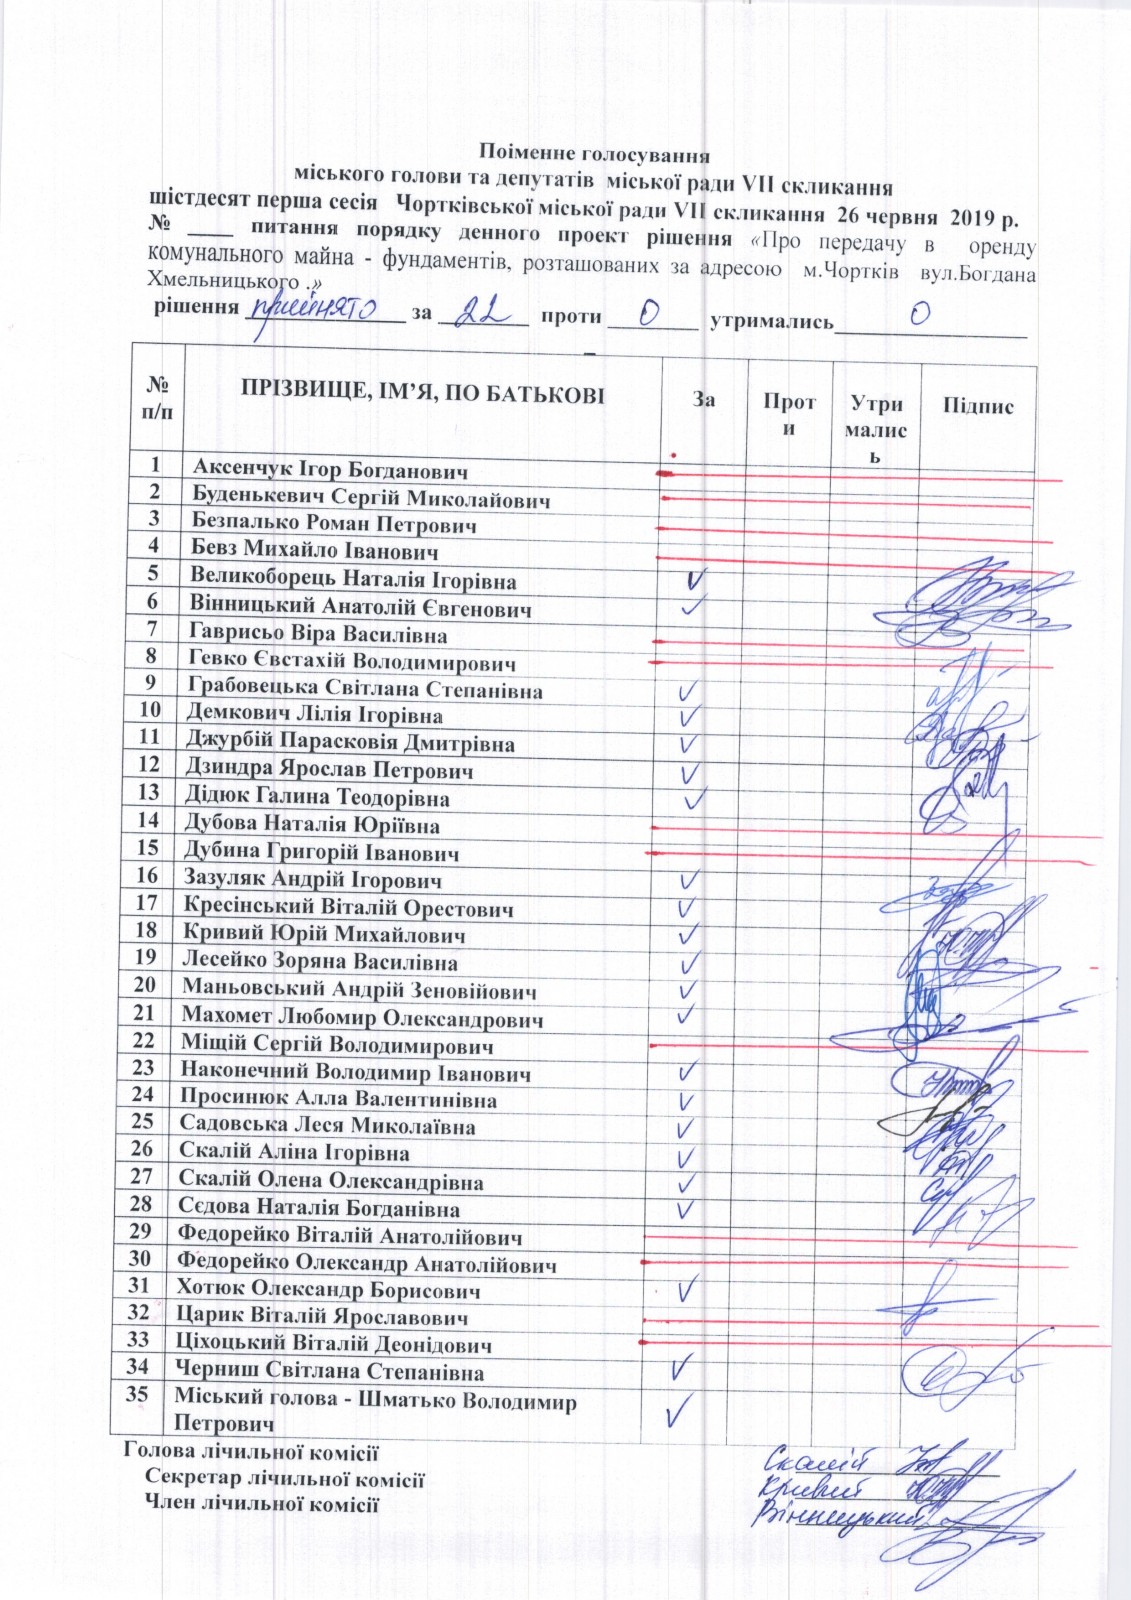 Поіменне голосування
міського голови та депутатів міської ради VII скликання
шістдесят перша сесія Чортківської міської ради VII скликання 26 червня 2019 р.
№ ____ питання порядку денного проект рішення «Про передачу в оренду
комунального майна - фундаментів, розташованих за адресою м.Чортків вул.Богдана
Хмельницького .»
рішення прийнято за 22 проти 0 утримались 0
№ п/п ПРІЗВИЩЕ, ІМ’Я, ПО БАТЬКОВІ За Проти Утрималися Підпис
1 Аксенчук Ігор Богданович
2 Буденькевич Сергій Миколайович
3 Безпалько Роман Петрович
4 Бевз Михайло Іванович
5 Великоборець Наталія Ігорівна ✓
6 Вінницький Анатолій Євгенович ✓
7 Гаврисьо Віра Василівна
8 Гевко Євстахій Володимирович
9 Грабовецька Світлана Степанівна ✓
10 Демкович Лілія Ігорівна ✓
11 Джурбій Парасковія Дмитрівна ✓
12 Дзиндра Ярослав Петрович ✓
13 Дідюк Галина Теодорівна ✓
14 Дубова Наталія Юріївна
15 Дубина Григорій Іванович
16 Зазуляк Андрій Ігорович ✓
17 Кресінський Віталій Орестович ✓
18 Кривий Юрій Михайлович ✓
19 Лесейко Зоряна Василівна ✓
20 Маньовський Андрій Зеновійович ✓
21 Махомет Любомир Олександрович ✓
22 Міщій Сергій Володимирович
23 Наконечний Володимир Іванович ✓
24 Просинюк Алла Валентинівна ✓
25 Садовська Леся Миколаївна ✓
26 Скалій Аліна Ігорівна ✓
27 Скалій Олена Олександрівна ✓
28 Сєдова Наталія Богданівна ✓
29 Федорейко Віталій Анатолійович
30 Федорейко Олександр Анатолійович
31 Хотюк Олександр Борисович ✓
32 Царик Віталій Ярославович
33 Ціхоцький Віталій Деонідович
34 Черниш Світлана Степанівна ✓
35 Міський голова - Шматько Володимир
Петрович ✓
Голова лічильної комісії Скалій
Секретар лічильної комісії Кривий
Член лічильної комісії Вінницький